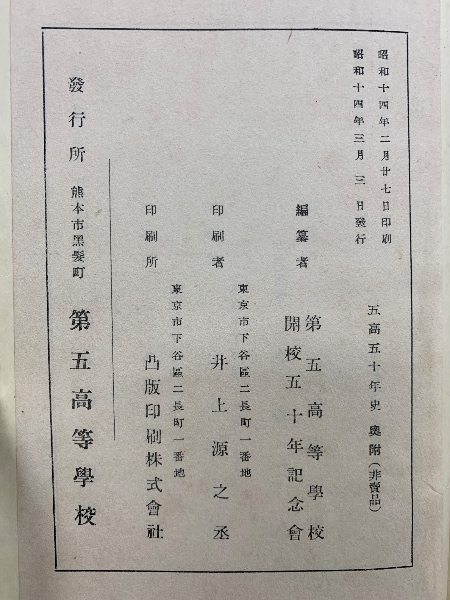 昭和十四年二月廿七日印刷
昭和十四年三月三日發行
五高五十年史 奧附(非賣品)
編纂者
第五高等學校
開校五十年記念會
東京市下谷區二長町一番地
印刷者 井上源之丞
東京市下谷區二長町一番地
印刷所 凸版印刷株式會社
發行所 熊本市黑髮町 第五高等學校